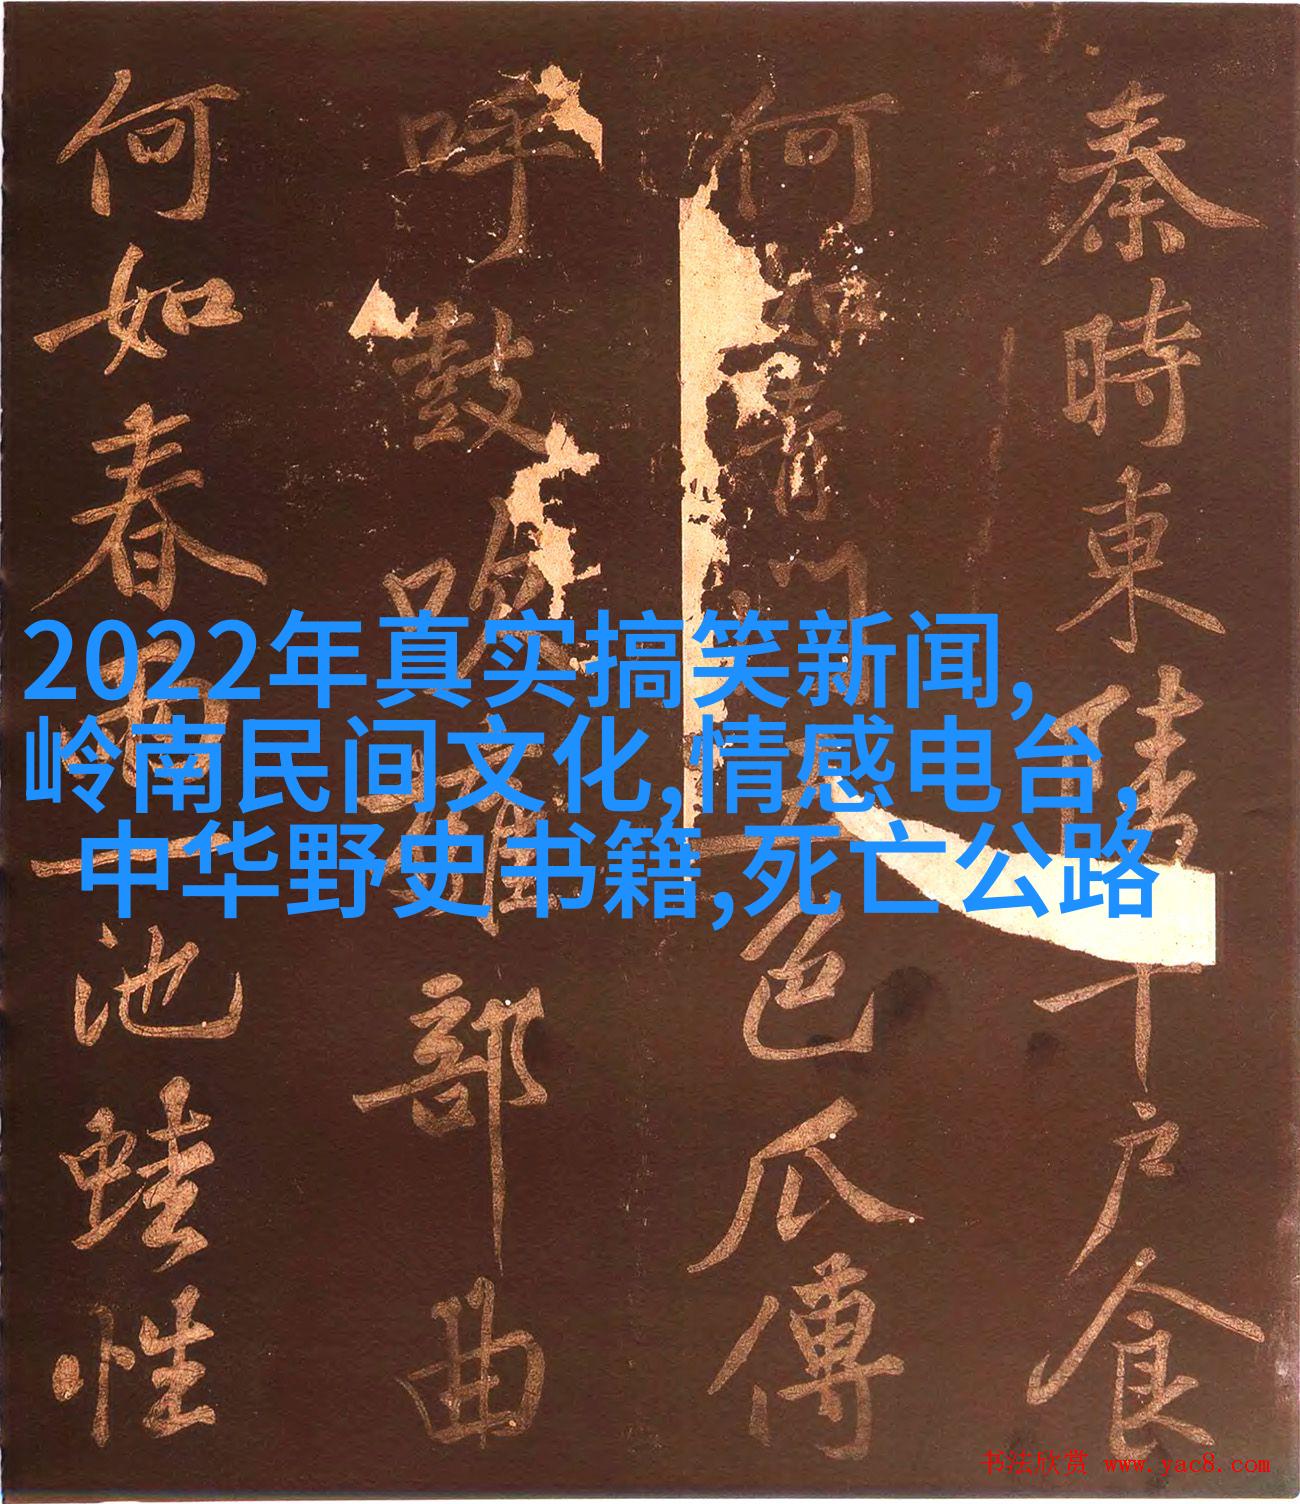 秦時東陵千戶食
何如青門五色瓜傳
呼鼓吹擁部曲
何如春雨一池蛙性
2022年真实搞笑新闻,
岭南民间文化,情感电台,
中华野史书籍,死亡公路
书法欣赏 www.yac8.com